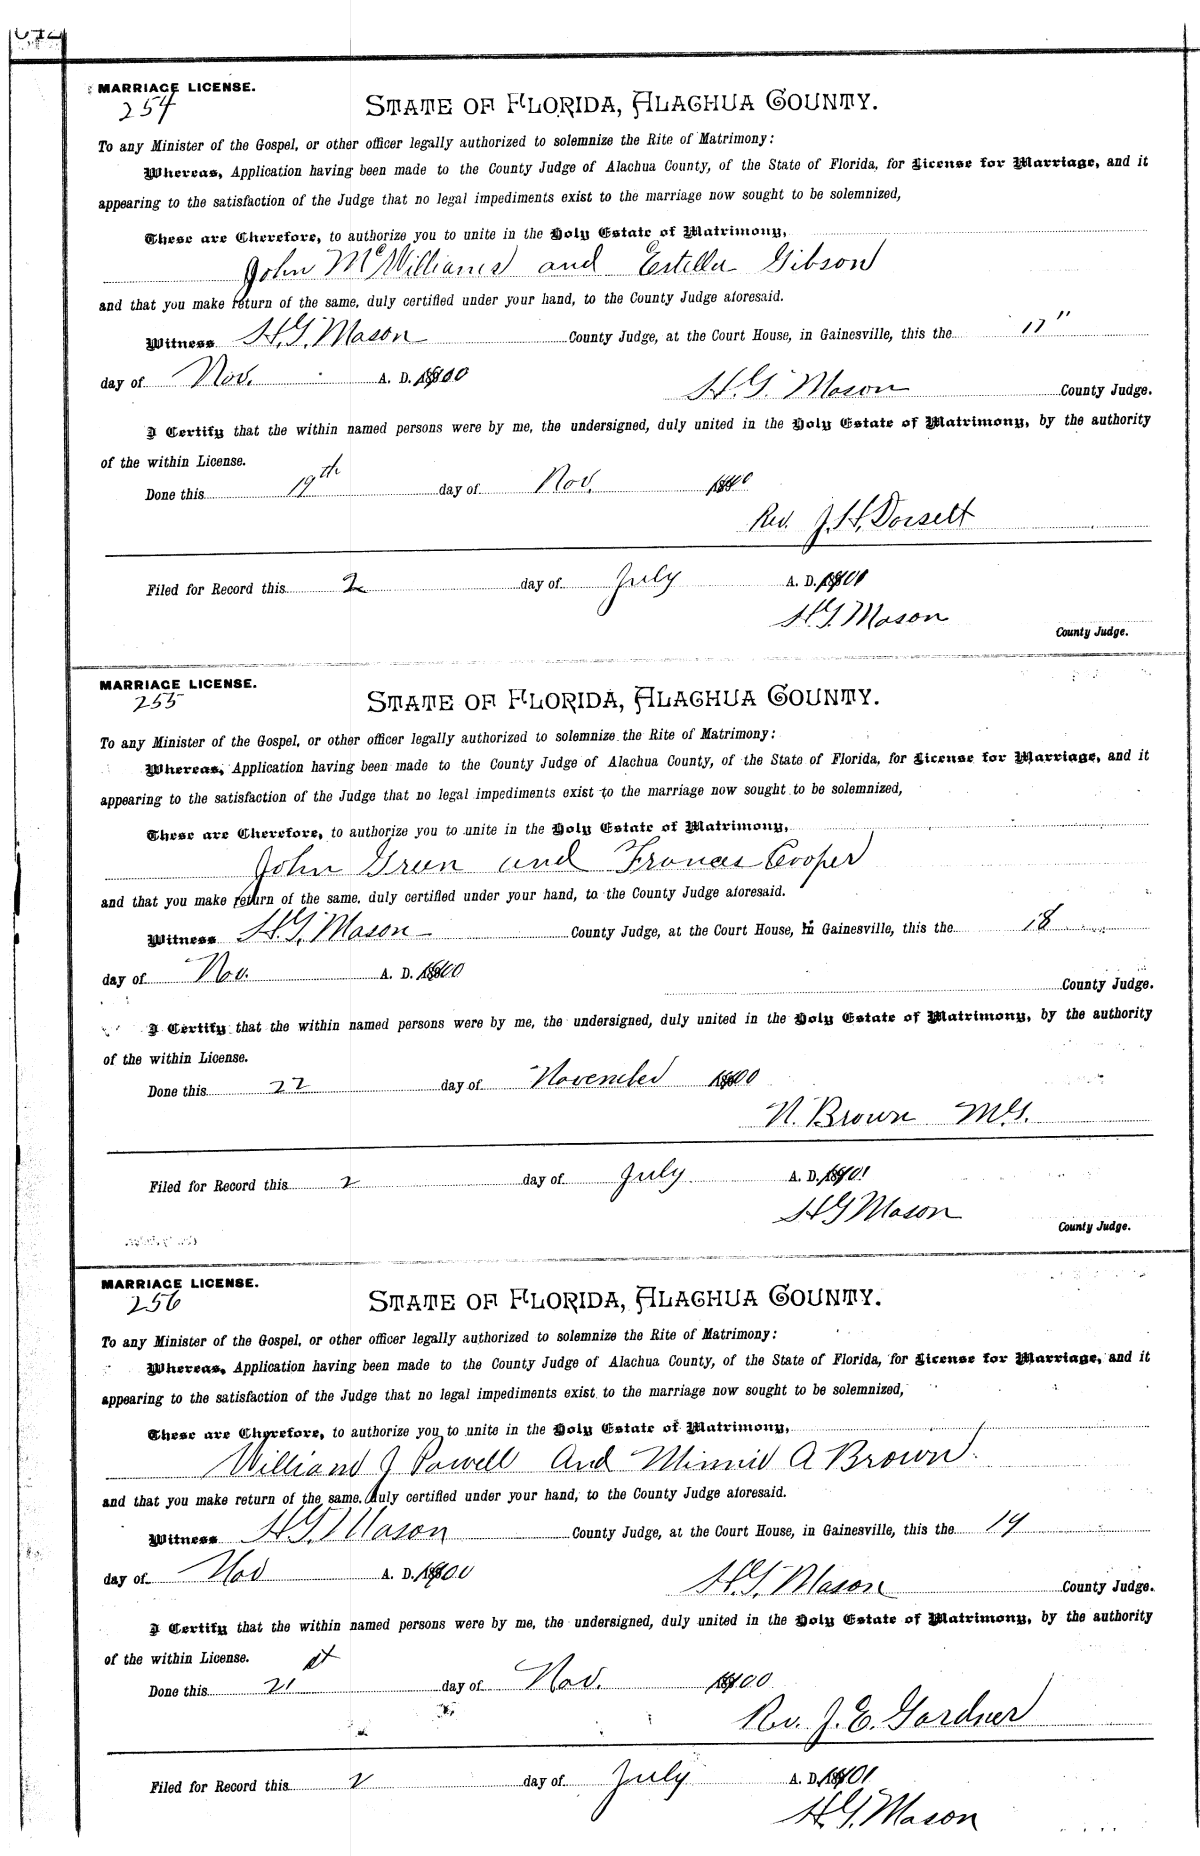 MARRIAGE LICENSE.
254
STATE OF FLORIDA, ALACHUA COUNTY.
To any Minister of the Gospel, or other officer legally authorized to solemnize the Rite of Matrimony:
Whereas, Application having been made to the County Judge of Alachua County, of the State of Florida, for License for Marriage, and it
appearing to the satisfaction of the Judge that no legal impediments exist to the marriage now sought to be solemnized,
These are Therefore, to authorize you to unite in the Holy Estate of Matrimony,
John McWilliams and Estella Gibson
and that you make return of the same, duly certified under your hand, to the County Judge aforesaid.
Witness H.G. Mason County Judge, at the Court House, in Gainesville, this the 17"
day of Nov. A. D. 1900
H.G. Mason County Judge.
I Certify that the within named persons were by me, the undersigned, duly united in the Holy Estate of Matrimony, by the authority
of the within License.
Done this 19th day of Nov. 1900
Rev. J.H. Dorsett
Filed for Record this 2 day of July A. D. 1901
H.G. Mason
County Judge.
MARRIAGE LICENSE.
255
STATE OF FLORIDA, ALACHUA COUNTY.
To any Minister of the Gospel, or other officer legally authorized to solemnize the Rite of Matrimony:
Whereas, Application having been made to the County Judge of Alachua County, of the State of Florida, for License for Marriage, and it
appearing to the satisfaction of the Judge that no legal impediments exist to the marriage now sought to be solemnized,
These are Therefore, to authorize you to unite in the Holy Estate of Matrimony,
John Green and Frances Cooper
and that you make return of the same, duly certified under your hand, to the County Judge aforesaid.
Witness H.G. Mason County Judge, at the Court House, in Gainesville, this the 18
day of Nov. A. D. 1900
County Judge.
I Certify that the within named persons were by me, the undersigned, duly united in the Holy Estate of Matrimony, by the authority
of the within License.
Done this 22 day of November 1900
N. Brown M.G.
Filed for Record this 2 day of July A. D. 1901
H G Mason
County Judge.
MARRIAGE LICENSE.
256
STATE OF FLORIDA, ALACHUA COUNTY.
To any Minister of the Gospel, or other officer legally authorized to solemnize the Rite of Matrimony:
Whereas, Application having been made to the County Judge of Alachua County, of the State of Florida, for License for Marriage, and it
appearing to the satisfaction of the Judge that no legal impediments exist to the marriage now sought to be solemnized,
These are Therefore, to authorize you to unite in the Holy Estate of Matrimony,
William J Powell And Minnie A Brown
and that you make return of the same, duly certified under your hand, to the County Judge aforesaid.
Witness H.G. Mason County Judge, at the Court House, in Gainesville, this the 19
day of Nov A. D. 1900
H.G. Mason County Judge.
I Certify that the within named persons were by me, the undersigned, duly united in the Holy Estate of Matrimony, by the authority
of the within License.
Done this 21st day of Nov. 1900
Rev. J. E. Gardner
Filed for Record this 2 day of July A. D. 1901
H.G. Mason